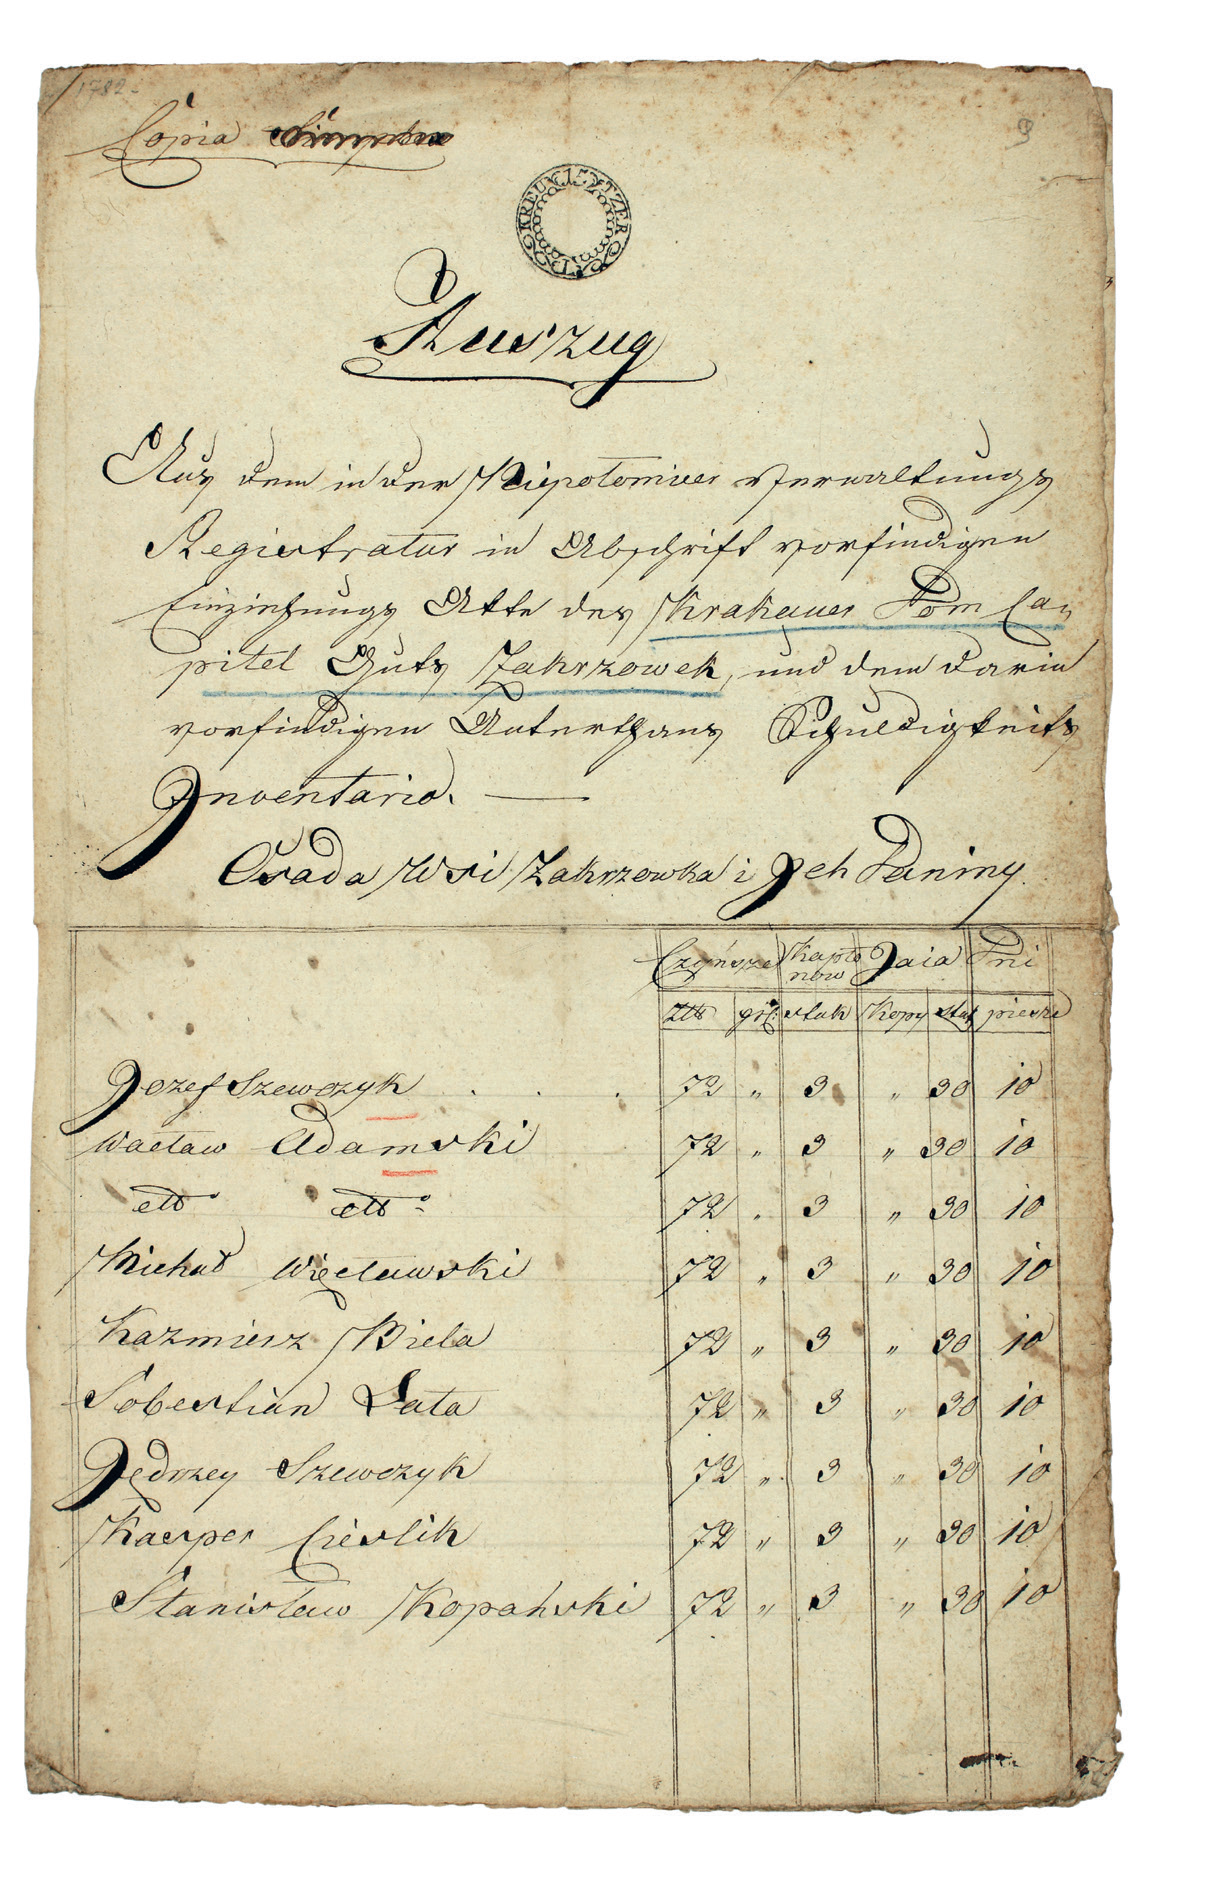 1782
Copia
3
15 KREUTZER
Auszug
Aus dem in der Niepolomicer Verwaltungs
Registratur in Abschrift vorfindigen
Einziehungs Akte des Krakauer Dom Ca-
pitel Guts Zakrzowek, und dem darin
vorfindigen Unterthans Schuldigkeits
Inventario. —
Osada Wsi Zakrzowka i Jch Daniny
Czynsze Kapło Jaia Dni
now
Złt grl: stuk Kopy stuk piesze
Jozef Szewczyk . . . 72 " 3 " 30 10
Wacław Adamski 72 " 3 " 30 10
etto etto 72 " 3 " 30 10
Michał Więcławski 72 " 3 " 30 10
Kazmierz Biela 72 " 3 " 30 10
Sobestian Łata 72 " 3 " 30 10
Jędrzey Szewczyk 72 " 3 " 30 10
Kasper Cieslik 72 " 3 " 30 10
Stanisław Kopański 72 " 3 " 30 10